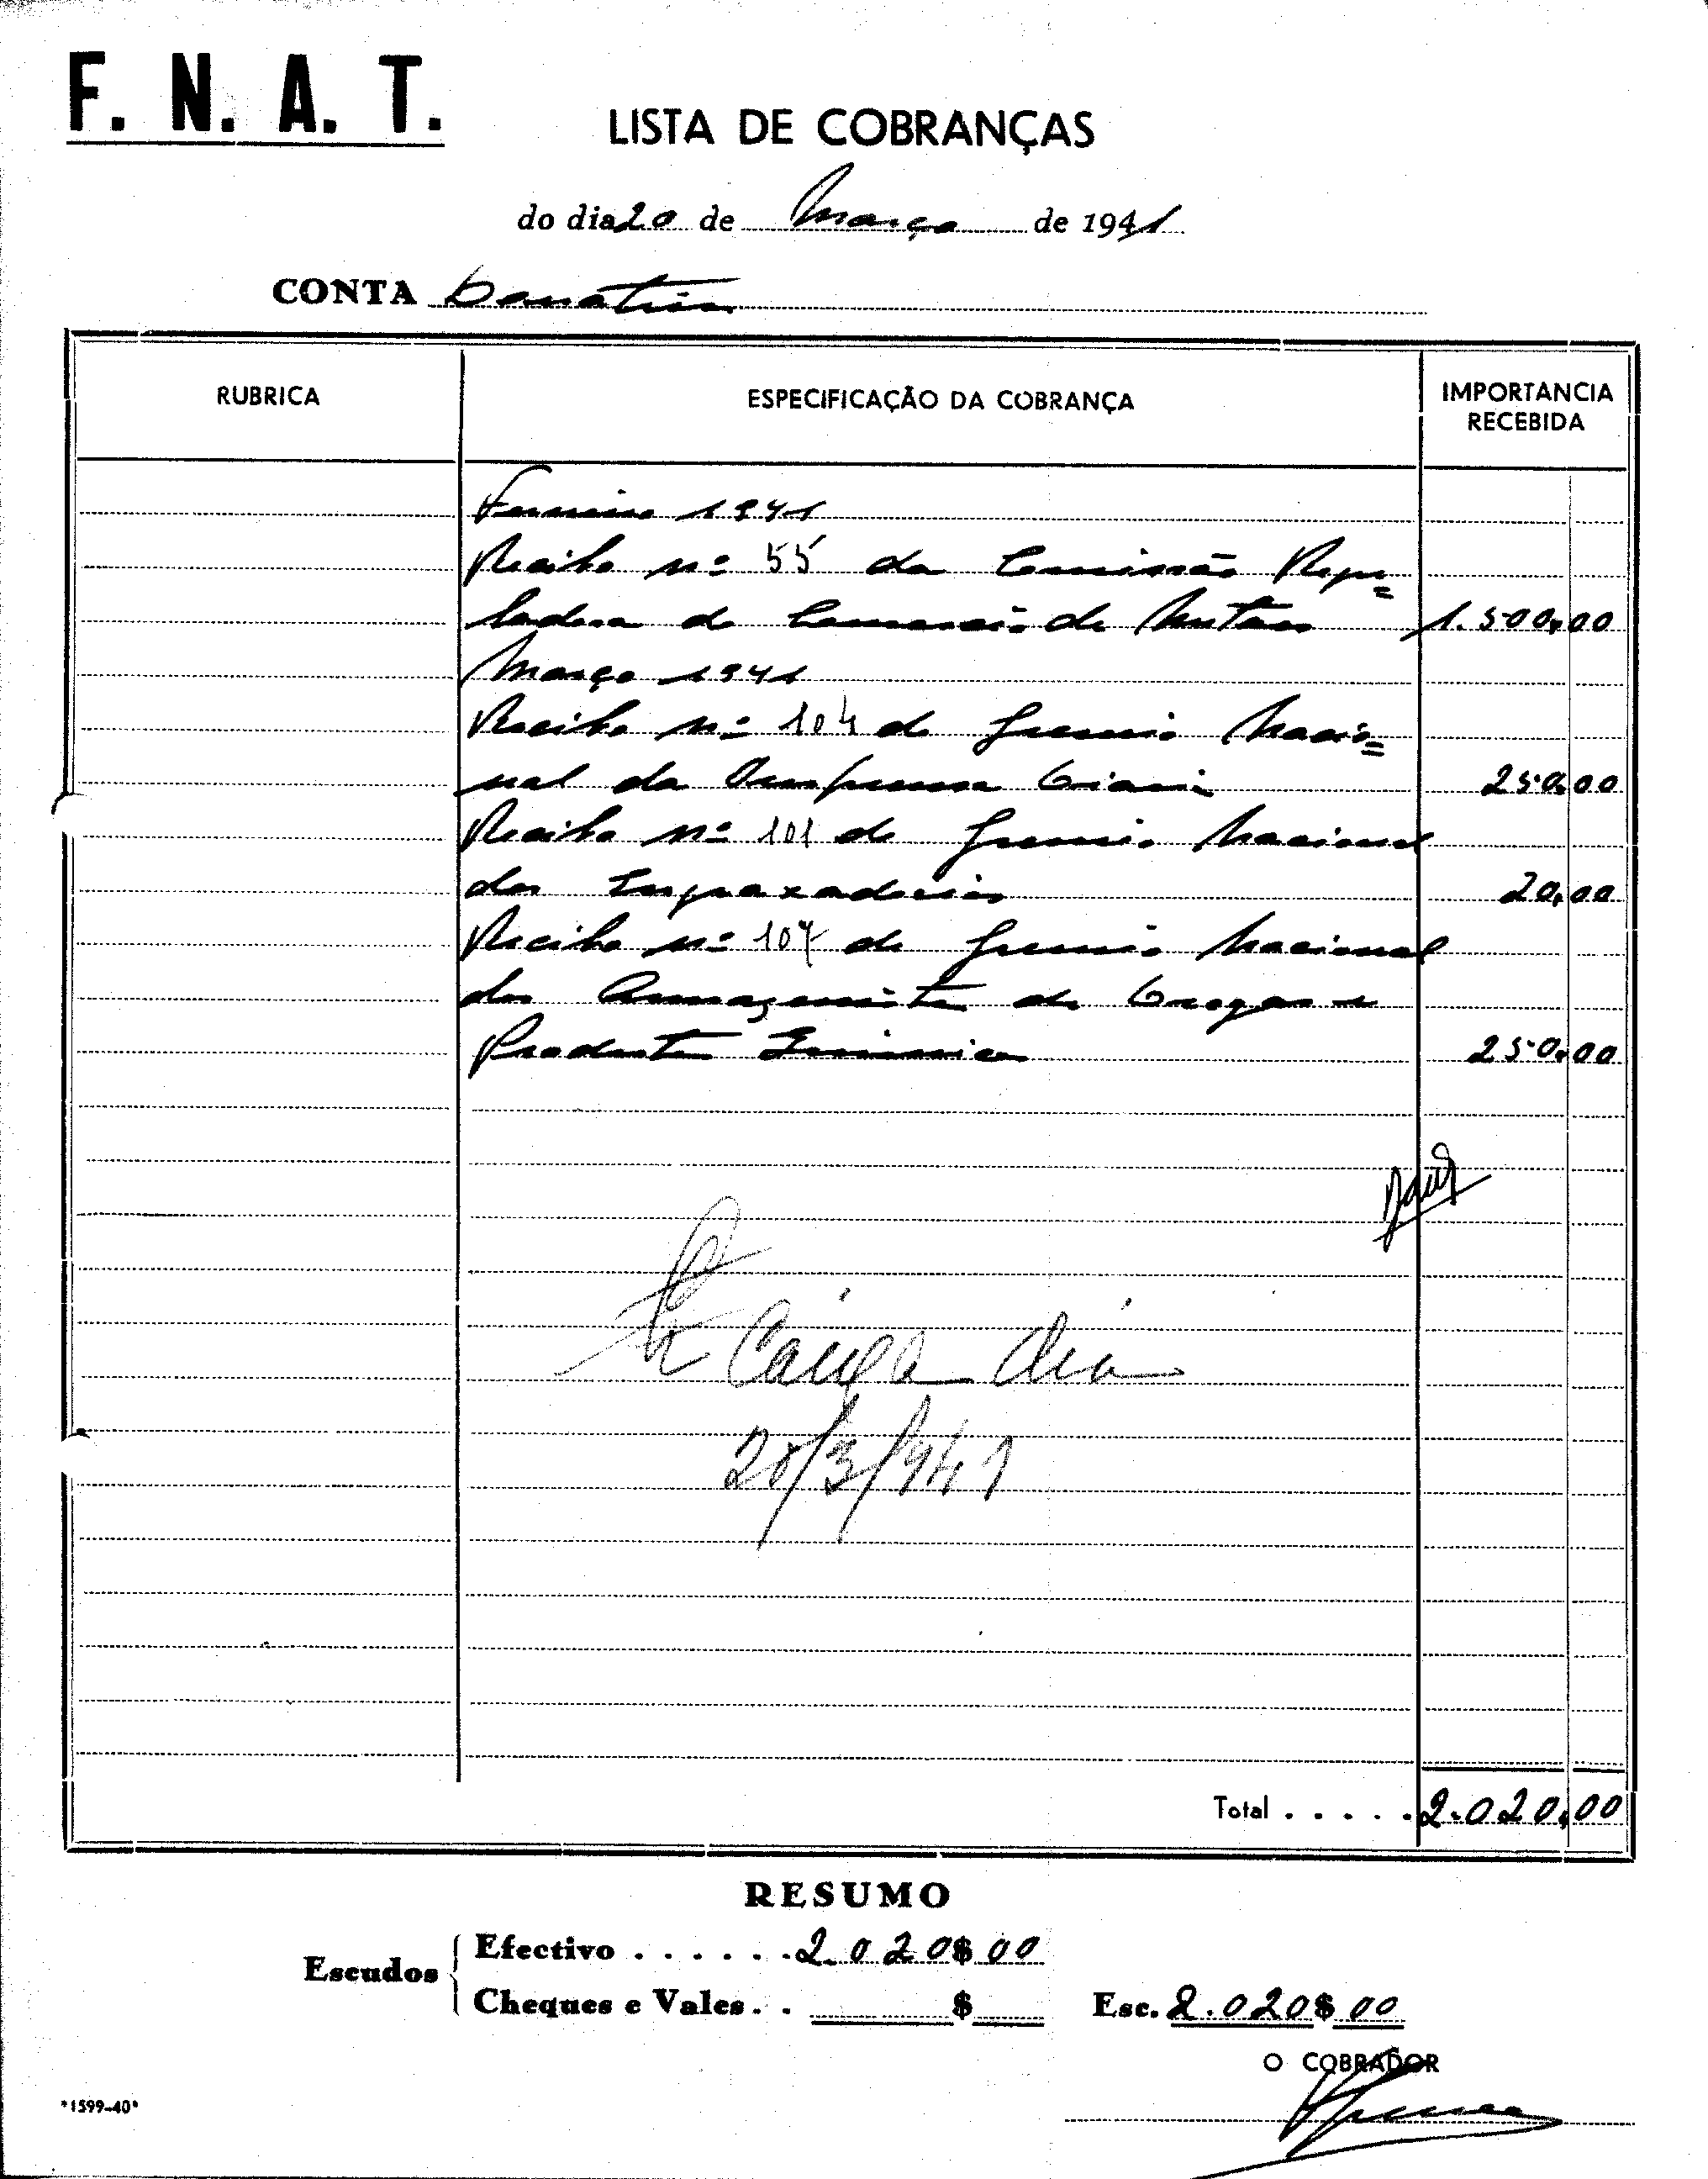 F. N. A. T.
LISTA DE COBRANÇAS
do dia 20 de Março de 1941
CONTA Donativos
RUBRICA
ESPECIFICAÇÃO DA COBRANÇA
IMPORTANCIA
RECEBIDA
Fevereiro 1941
Recibo nº 55 da Comissão Regu=
ladora do Comercio de 1.500,00
Março 1941
Recibo nº 104 do Gremio Nacio=
nal da Imprensa Diaria 250,00
Recibo nº 101 do Gremio Nacional
dos 20,00
Recibo nº 107 do Gremio Nacional
dos Armazenistas de Drogas e
Produtos Quimicos 250,00
Caixa dia
20/3/941
Total . . . . . 2.020,00
RESUMO
Escudos
Efectivo . . . . . . 2.020$00
Cheques e Vales . . $
Esc. 2.020$00
O COBRADOR
*1599-40*